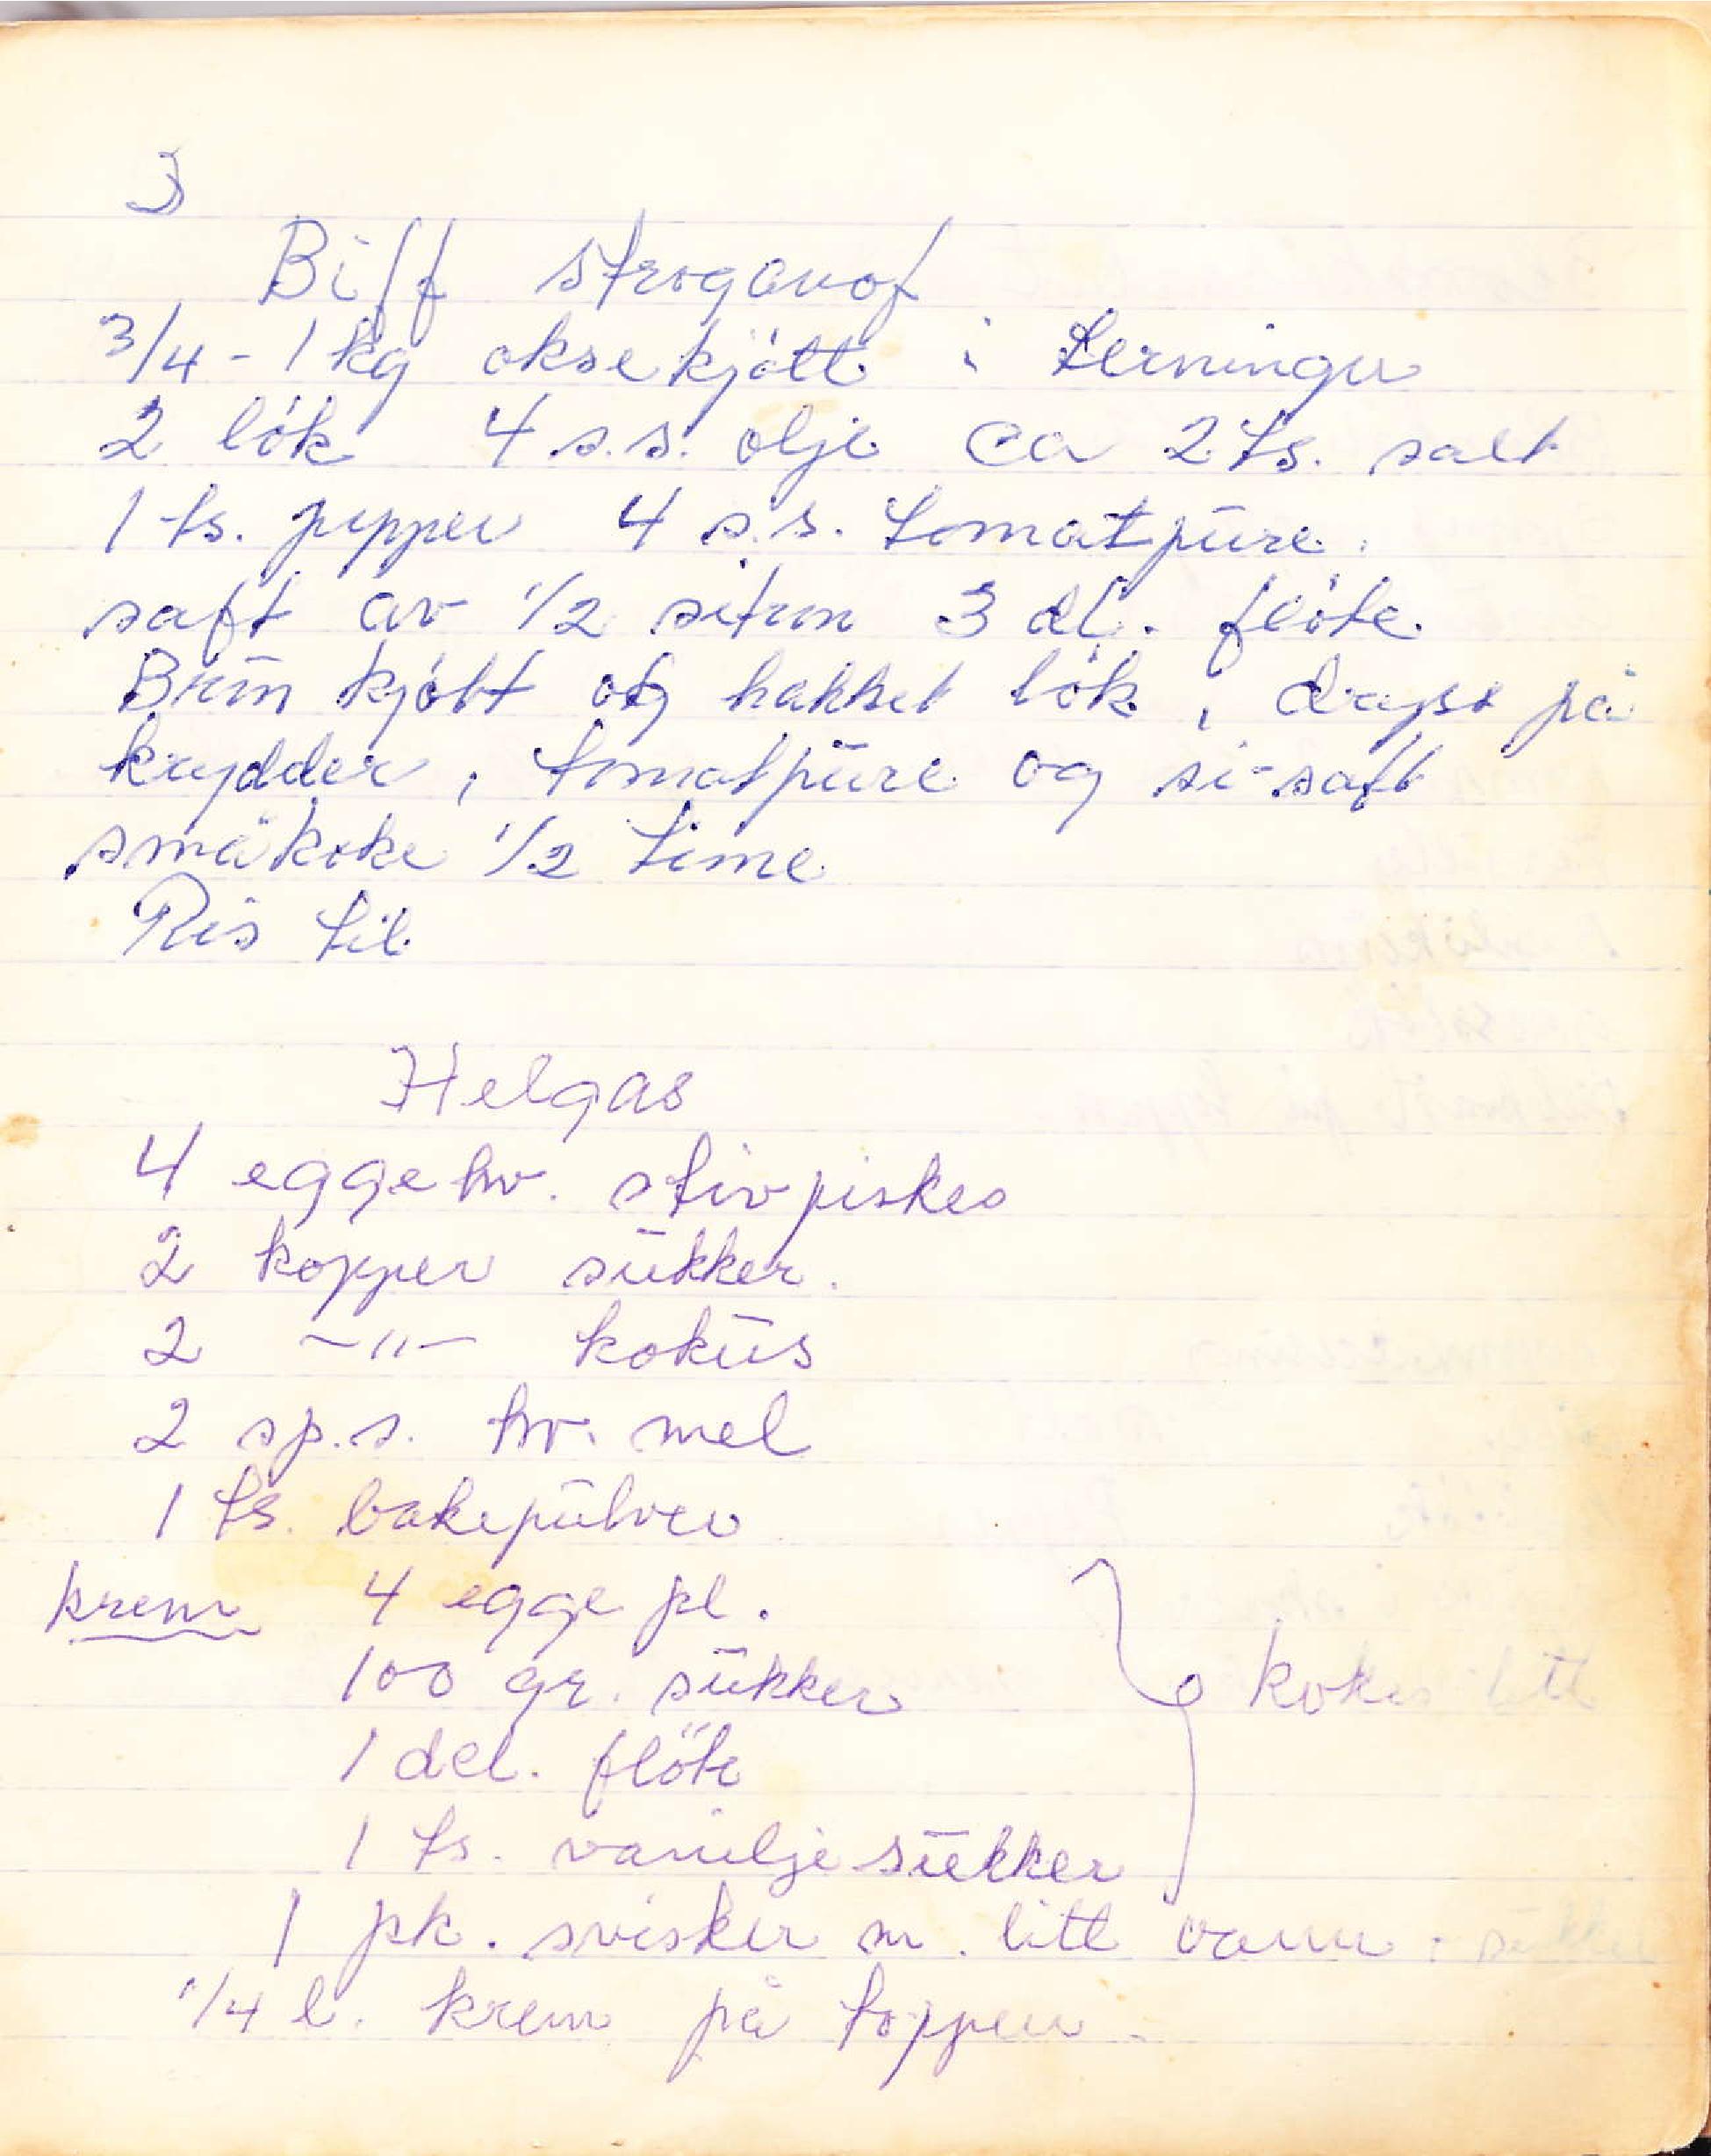 3
Biff stroganof
3/4 - 1 kg oksekjött i terninger
2 lök 4 s.s. olje ca 2 ts. salt
1 ts. pepper 4 s.s. tomatpure.
saft av 1/2 sitron 3 dl. flöte
Brun kjött og hakket lök, dryss på
krydder, tomatpure og si-saft
småkoke 1/2 time
Ris til
Helgas
4 eggehv. stivpiskes
2 kopper sukker.
2 -"- kokus
2 sp.s. hv. mel
1 ts. bakepulver
krem 4 egge pl.
100 gr. sukker
1 del. flöte
kokes litt
1 ts. vanilje sukker
1 pk. svisker m. litt vann. sukker
1/4 l. krem på toppen.